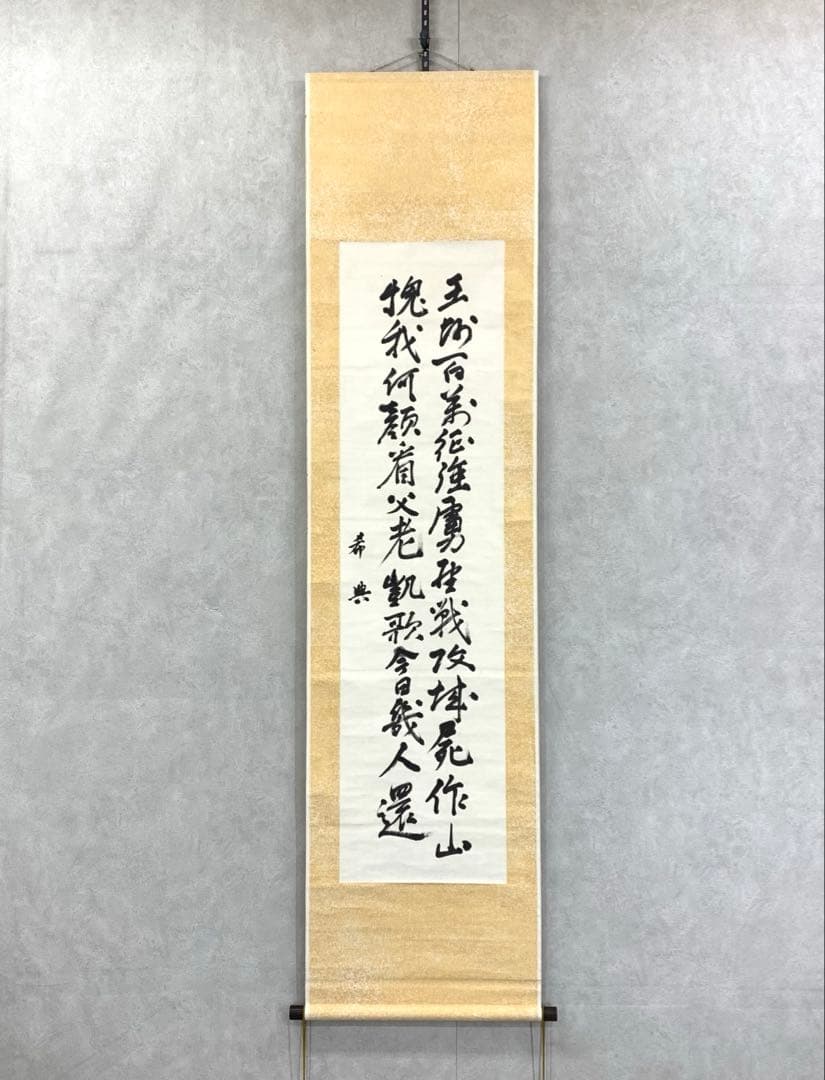 王師百萬征強虜野戦攻城屍作山
愧我何顔看父老凱歌今日幾人還
希典